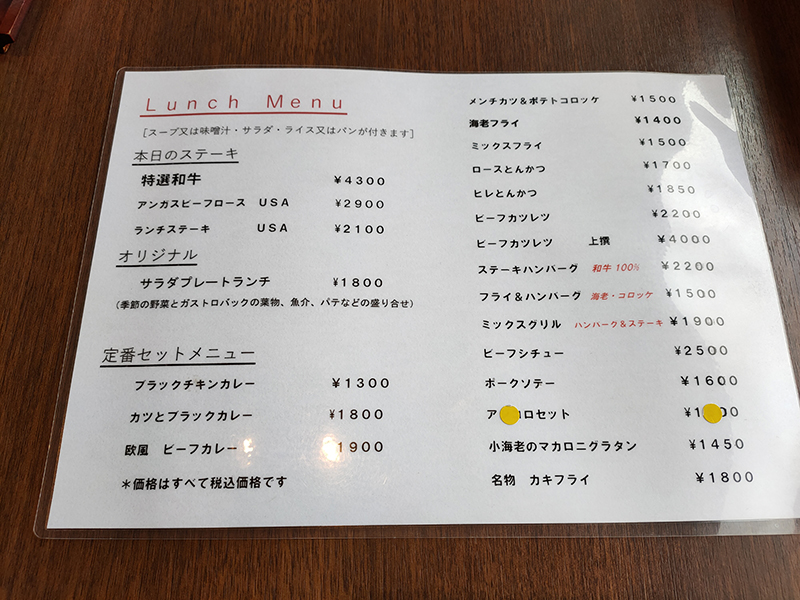 Lunch Menu
[スープ又は味噌汁・サラダ・ライス又はパンが付きます]
本日のステーキ
特選和牛 ¥4300
アンガスビーフロース USA ¥2900
ランチステーキ USA ¥2100
オリジナル
サラダプレートランチ ¥1800
(季節の野菜とガストロバックの葉物、魚介、パテなどの盛り合せ)
定番セットメニュー
ブラックチキンカレー ¥1300
カツとブラックカレー ¥1800
欧風 ビーフカレー 1900
*価格はすべて税込価格です
メンチカツ&ポテトコロッケ ¥1500
海老フライ ¥1400
ミックスフライ ¥1500
ロースとんかつ ¥1700
ヒレとんかつ ¥1850
ビーフカツレツ ¥2200
ビーフカツレツ 上撰 ¥4000
ステーキハンバーグ 和牛 100% ¥2200
フライ&ハンバーグ 海老・コロッケ ¥1500
ミックスグリル ハンバーグ&ステーキ ¥1900
ビーフシチュー ¥2500
ポークソテー ¥1600
セット
小海老のマカロニグラタン ¥1450
名物 カキフライ ¥1800